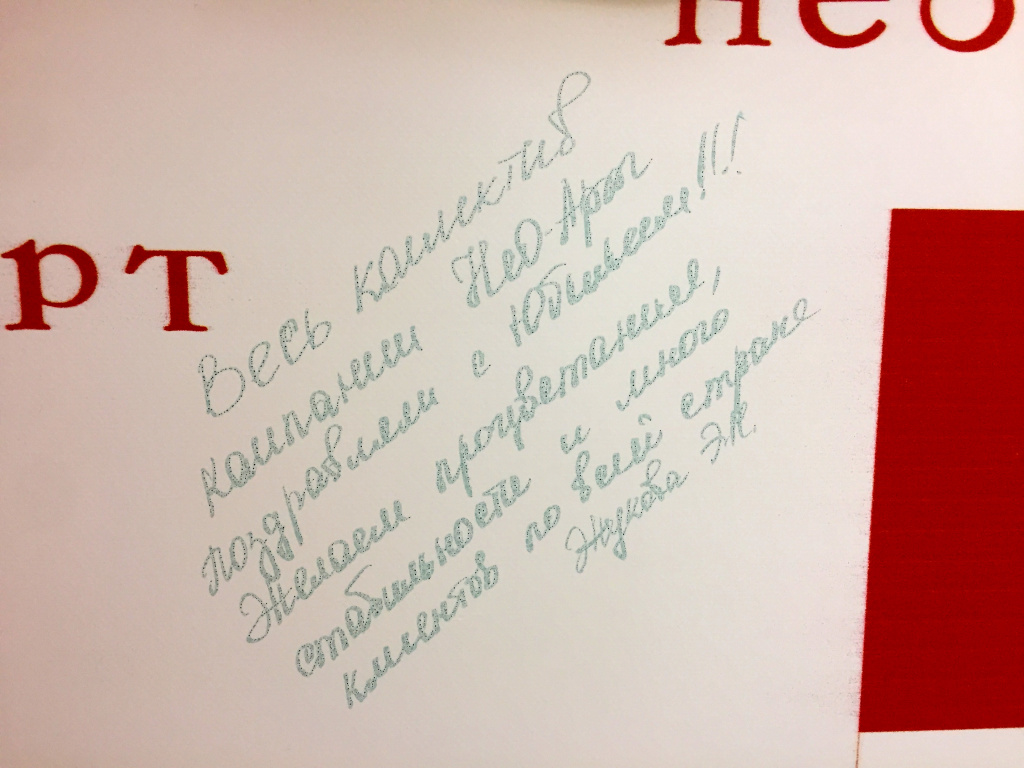 нео
рт
Весь коллектив
компании Нео-Арт
поздравляем с Юбилеем!!!
Желаем процветания,
стабильности и много
клиентов по всей стране
Жукова Э.К.